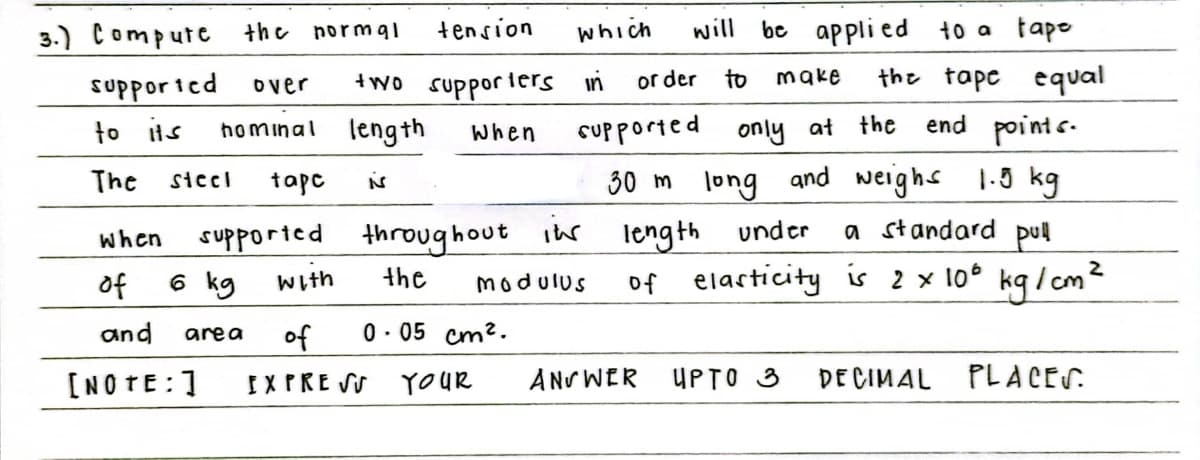 3.) Compute the normal tension which will be applied to a tape
supported over two supporters in order to make the tape equal
to its nominal length when supported only at the end points.
The steel tape is 30 m long and weighs 1.5 kg
when supported throughout its length under a standard pull
of 6 kg with the modulus of elasticity is 2 x 10⁶ kg/cm²
and area of 0.05 cm².
[NOTE:] EXPRESS YOUR ANSWER UPTO 3 DECIMAL PLACES.